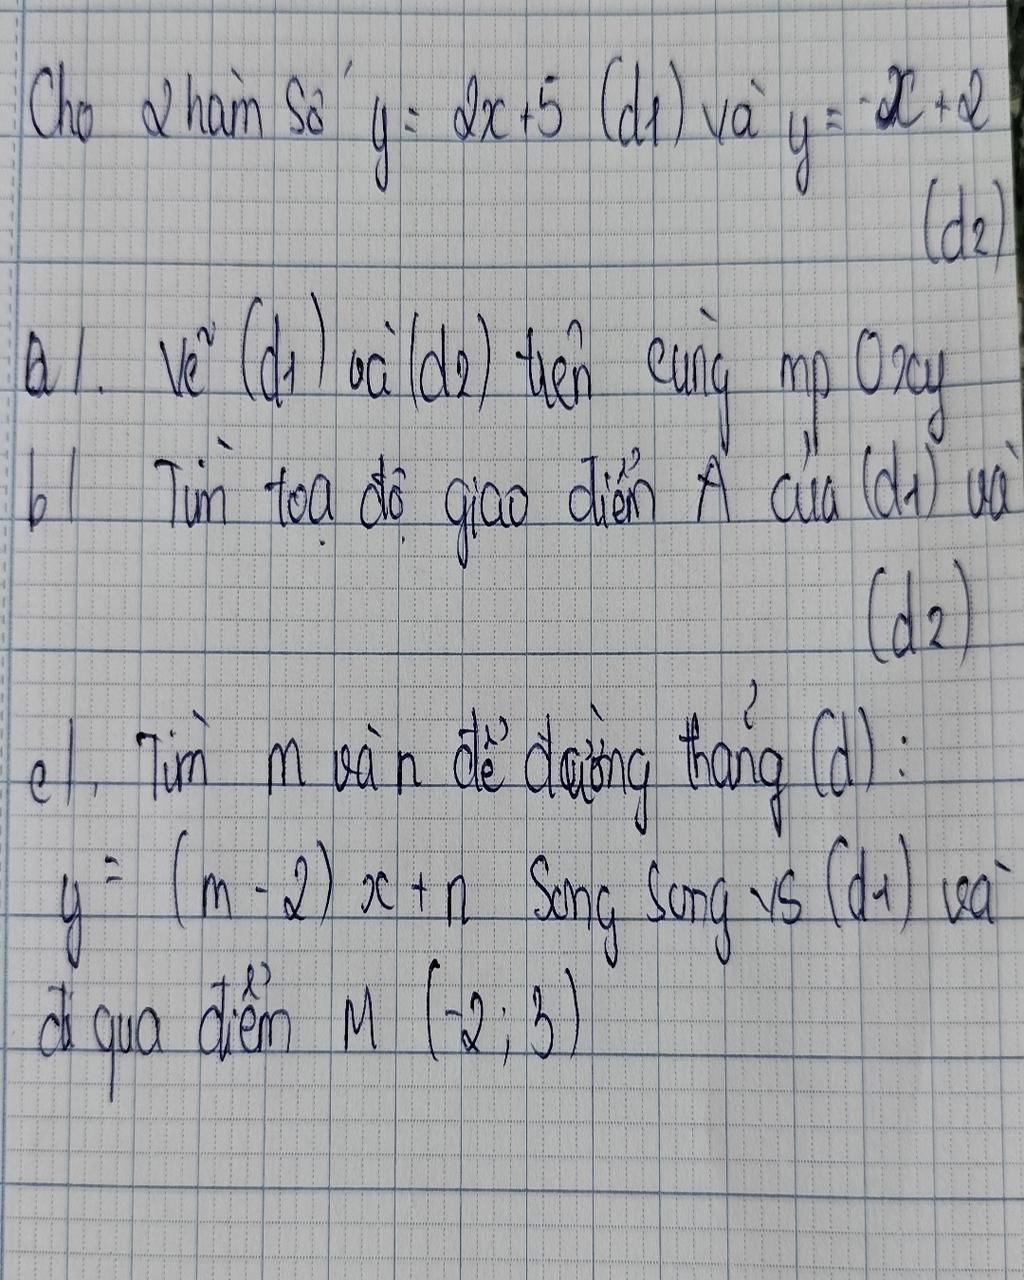 Cho 2 hàm số y = 2x + 5 (d1) và y = -x + 2
(d2)
a/. Vẽ (d1) và (d2) trên cùng mp Oxy
b/ Tìm toạ độ giao điểm A của (d1) và
(d2)
c/. Tìm m và n để đường thẳng (d):
y = (m - 2) x + n song song vs (d1) và
đi qua điểm M (-2; 3)